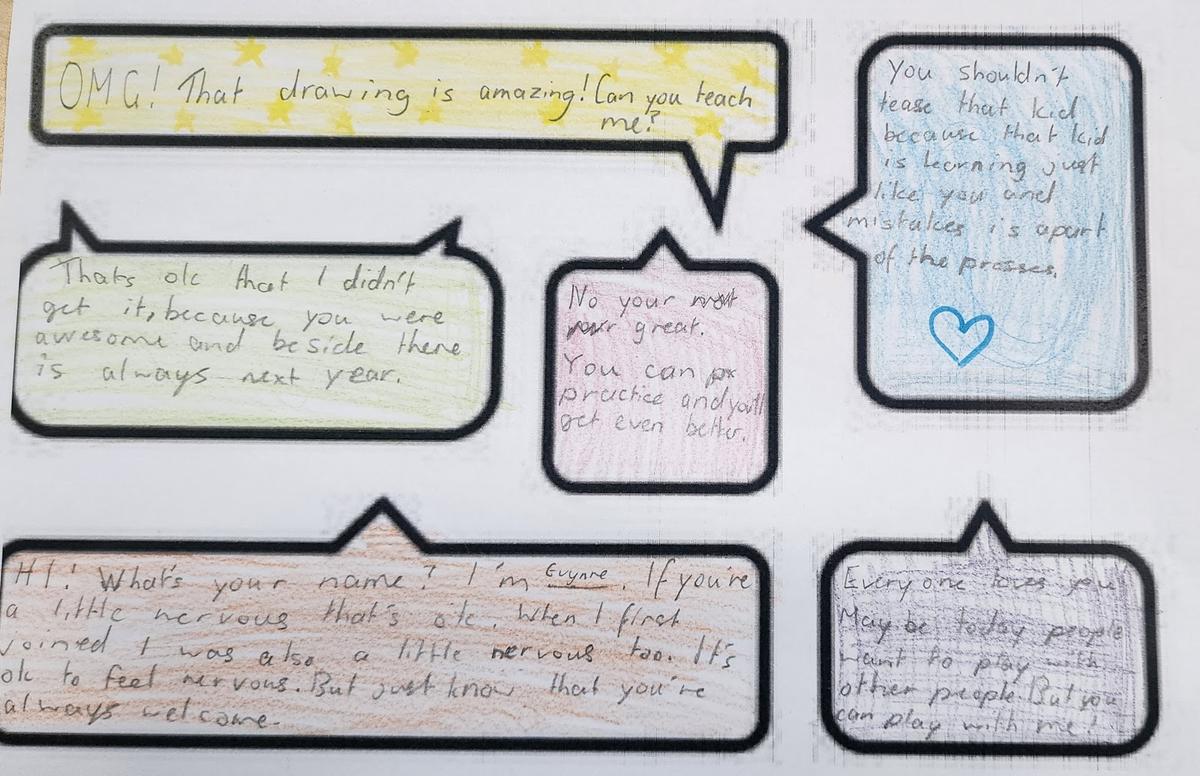 OMG! That drawing is amazing! Can you teach
me?
You shouldn't
tease that kid
because that kid
is learning just
like you and
mistakes is apart
of the presses.
Thats ok that I didn't
get it, because you were
awesome and beside there
is always next year.
No your most
your great.
You can pr
practice and you'll
get even better.
HI! What's your name? I'm Evynne. If you're
a little nervous that's ok. When I first
joined I was also a little nervous too. It's
ok to feel nervous. But just know that you're
always welcome.
Everyone loves you
May be today people
want to play with
other people. But you
can play with me!